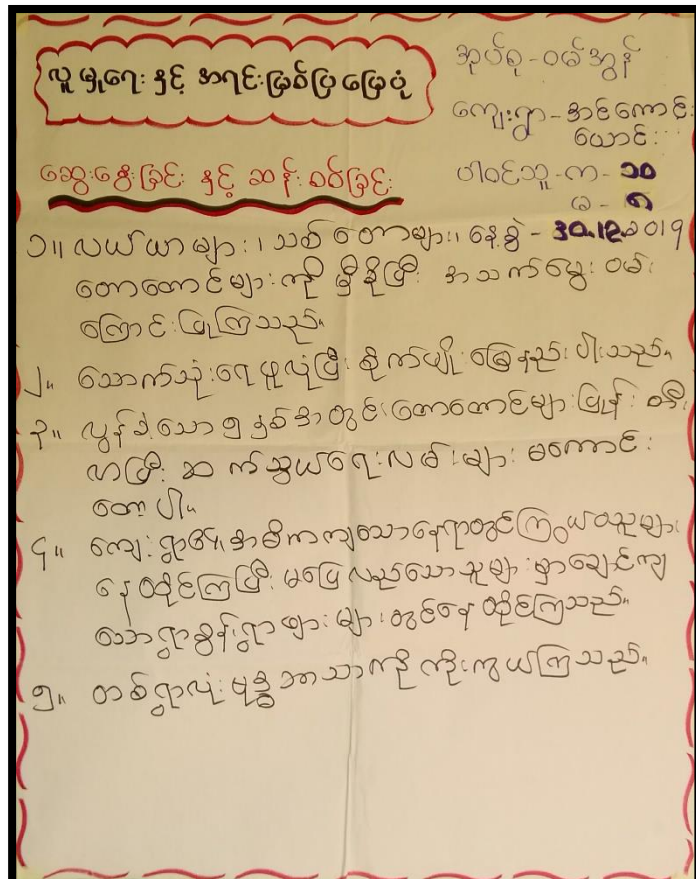 လူမှုရေး နှင့် အရင်းမြစ်ပြမြေပုံ
အုပ်စု - ဝမ်အွန်
ကျေးရွာ - အင်ကောင်း
ယောင်း
ဆွေးနွေးခြင်း နှင့် ဆန်းစစ်ခြင်း
ပါဝင်သူ - က - ၁၀
မ - ၅
နေ့စွဲ - 30.12.2019
၁။ လယ်ယာများ၊ သစ်တောများ၊
တောတောင်များကို မှီခိုပြီး အသက်မွေး ဝမ်း
ကြောင်းပြုကြသည်။
၂။ သောက်သုံးရေ ဖူလုံပြီး စိုက်ပျိုးမြေနည်းပါးသည်။
၃။ လွန်ခဲ့သော ၅ နှစ်အတွင်း တောတောင်များ ပြုန်းတီး
လာပြီး ဆက်သွယ်ရေးလမ်းများ မကောင်း
တော့ပါ။
၄။ ကျေးရွာ၏ အဓိကကျသောနေရာတွင် ကြွယ်ဝသူများ
နေထိုင်ကြပြီး မပြေလည်သောသူများမှာ ချောင်ကျ
သောရွာစွန်ရွာဖျားများတွင် နေထိုင်ကြသည်။
၅။ တစ်ရွာလုံး ဗုဒ္ဓဘာသာကို ကိုးကွယ်ကြသည်။